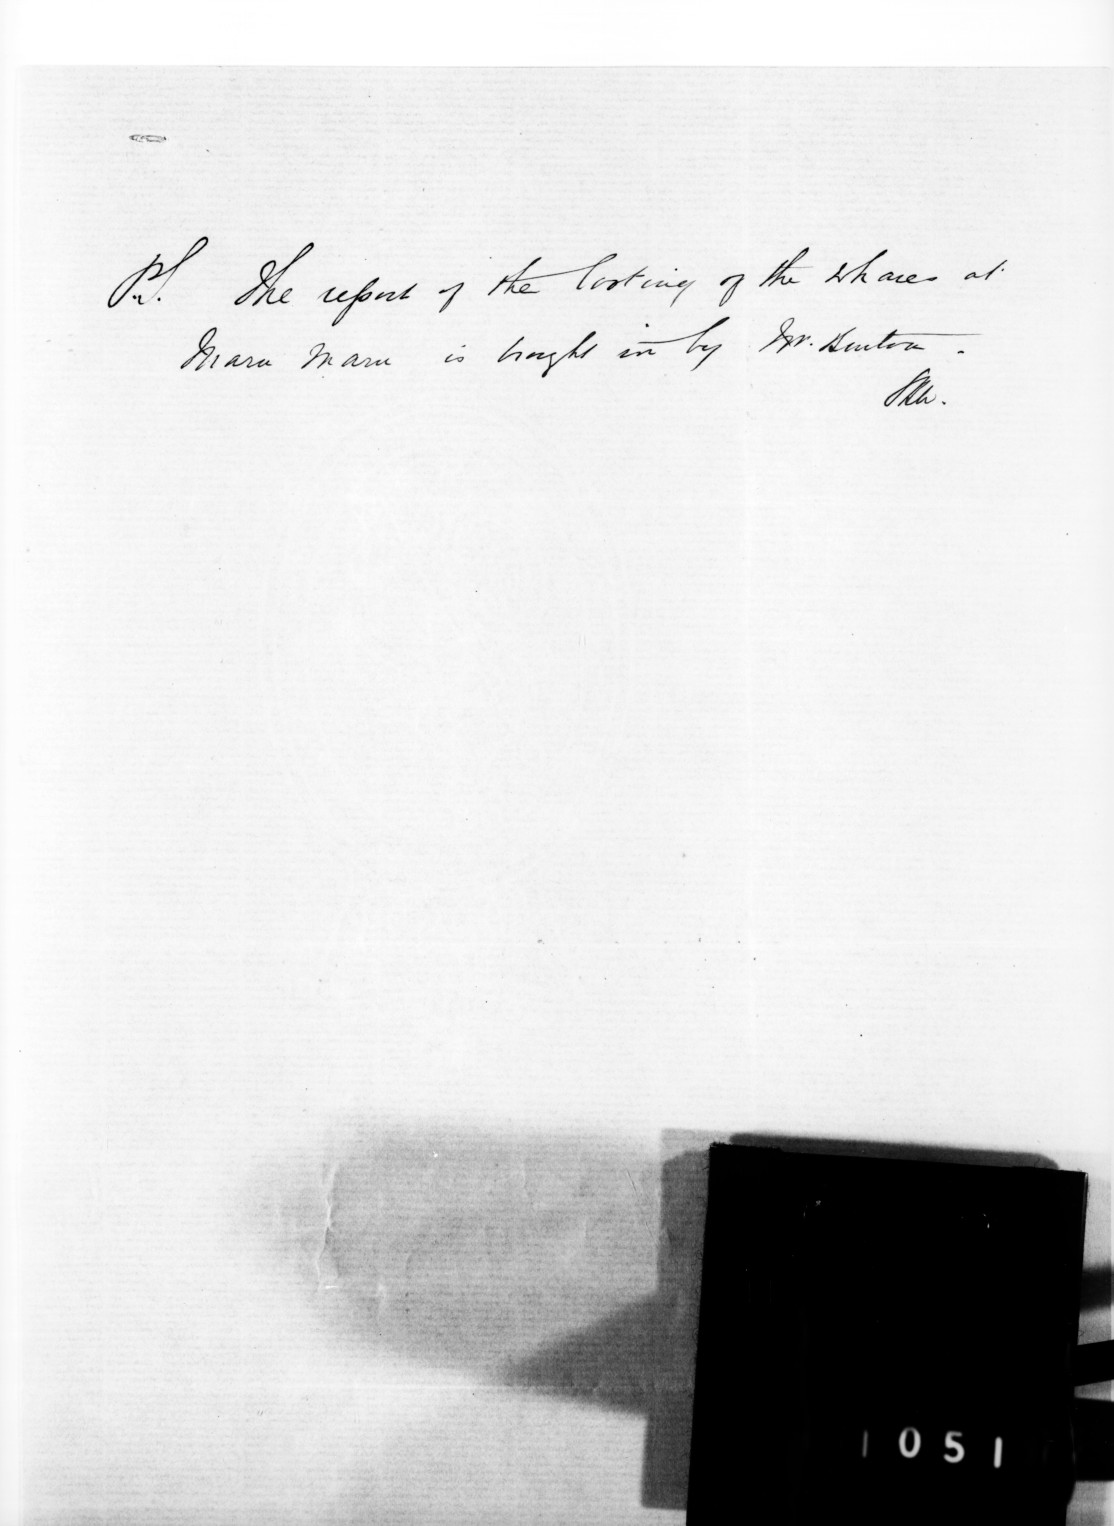 P.S. The report of the looting of the whares at
Maru Maru is brought in by Mr. Buxton.
1051